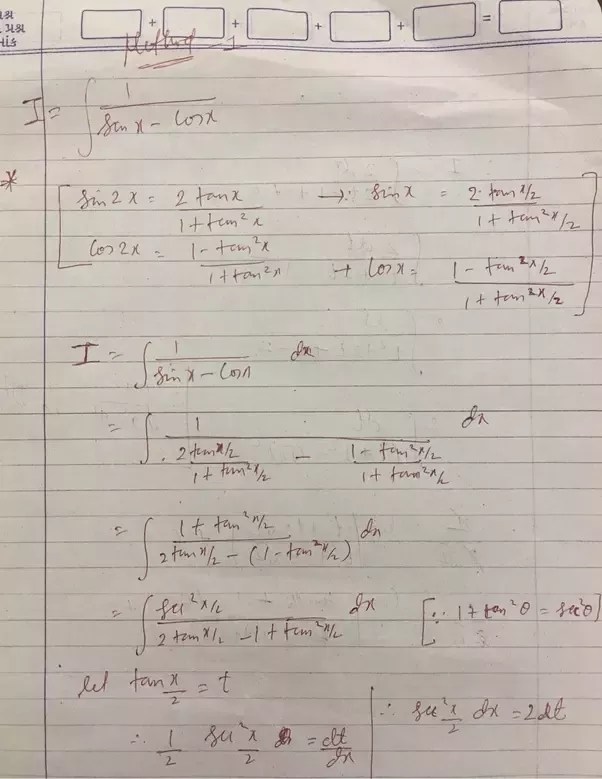 + + + + =
Method - 1
I = ∫ 1/(sin x - cos x)
* [ sin 2x = 2 tan x/(1 + tan² x) → ∴ sin x = 2·tan x/2/(1 + tan² x/2)
cos 2x = (1 - tan² x)/(1 + tan² x) → cos x = (1 - tan² x/2)/(1 + tan² x/2) ]
I = ∫ 1/(sin x - cos x) dx
= ∫ 1/(2 tan x/2/(1 + tan² x/2) - (1 - tan² x/2)/(1 + tan² x/2)) dx
= ∫ (1 + tan² x/2)/(2 tan x/2 - (1 - tan² x/2)) dx
= ∫ sec² x/2/(2 tan x/2 - 1 + tan² x/2) dx [∵ 1 + tan² θ = sec² θ]
let tan x/2 = t
∴ 1/2 sec² x/2 = dt/dx
∴ sec² x/2 dx = 2dt